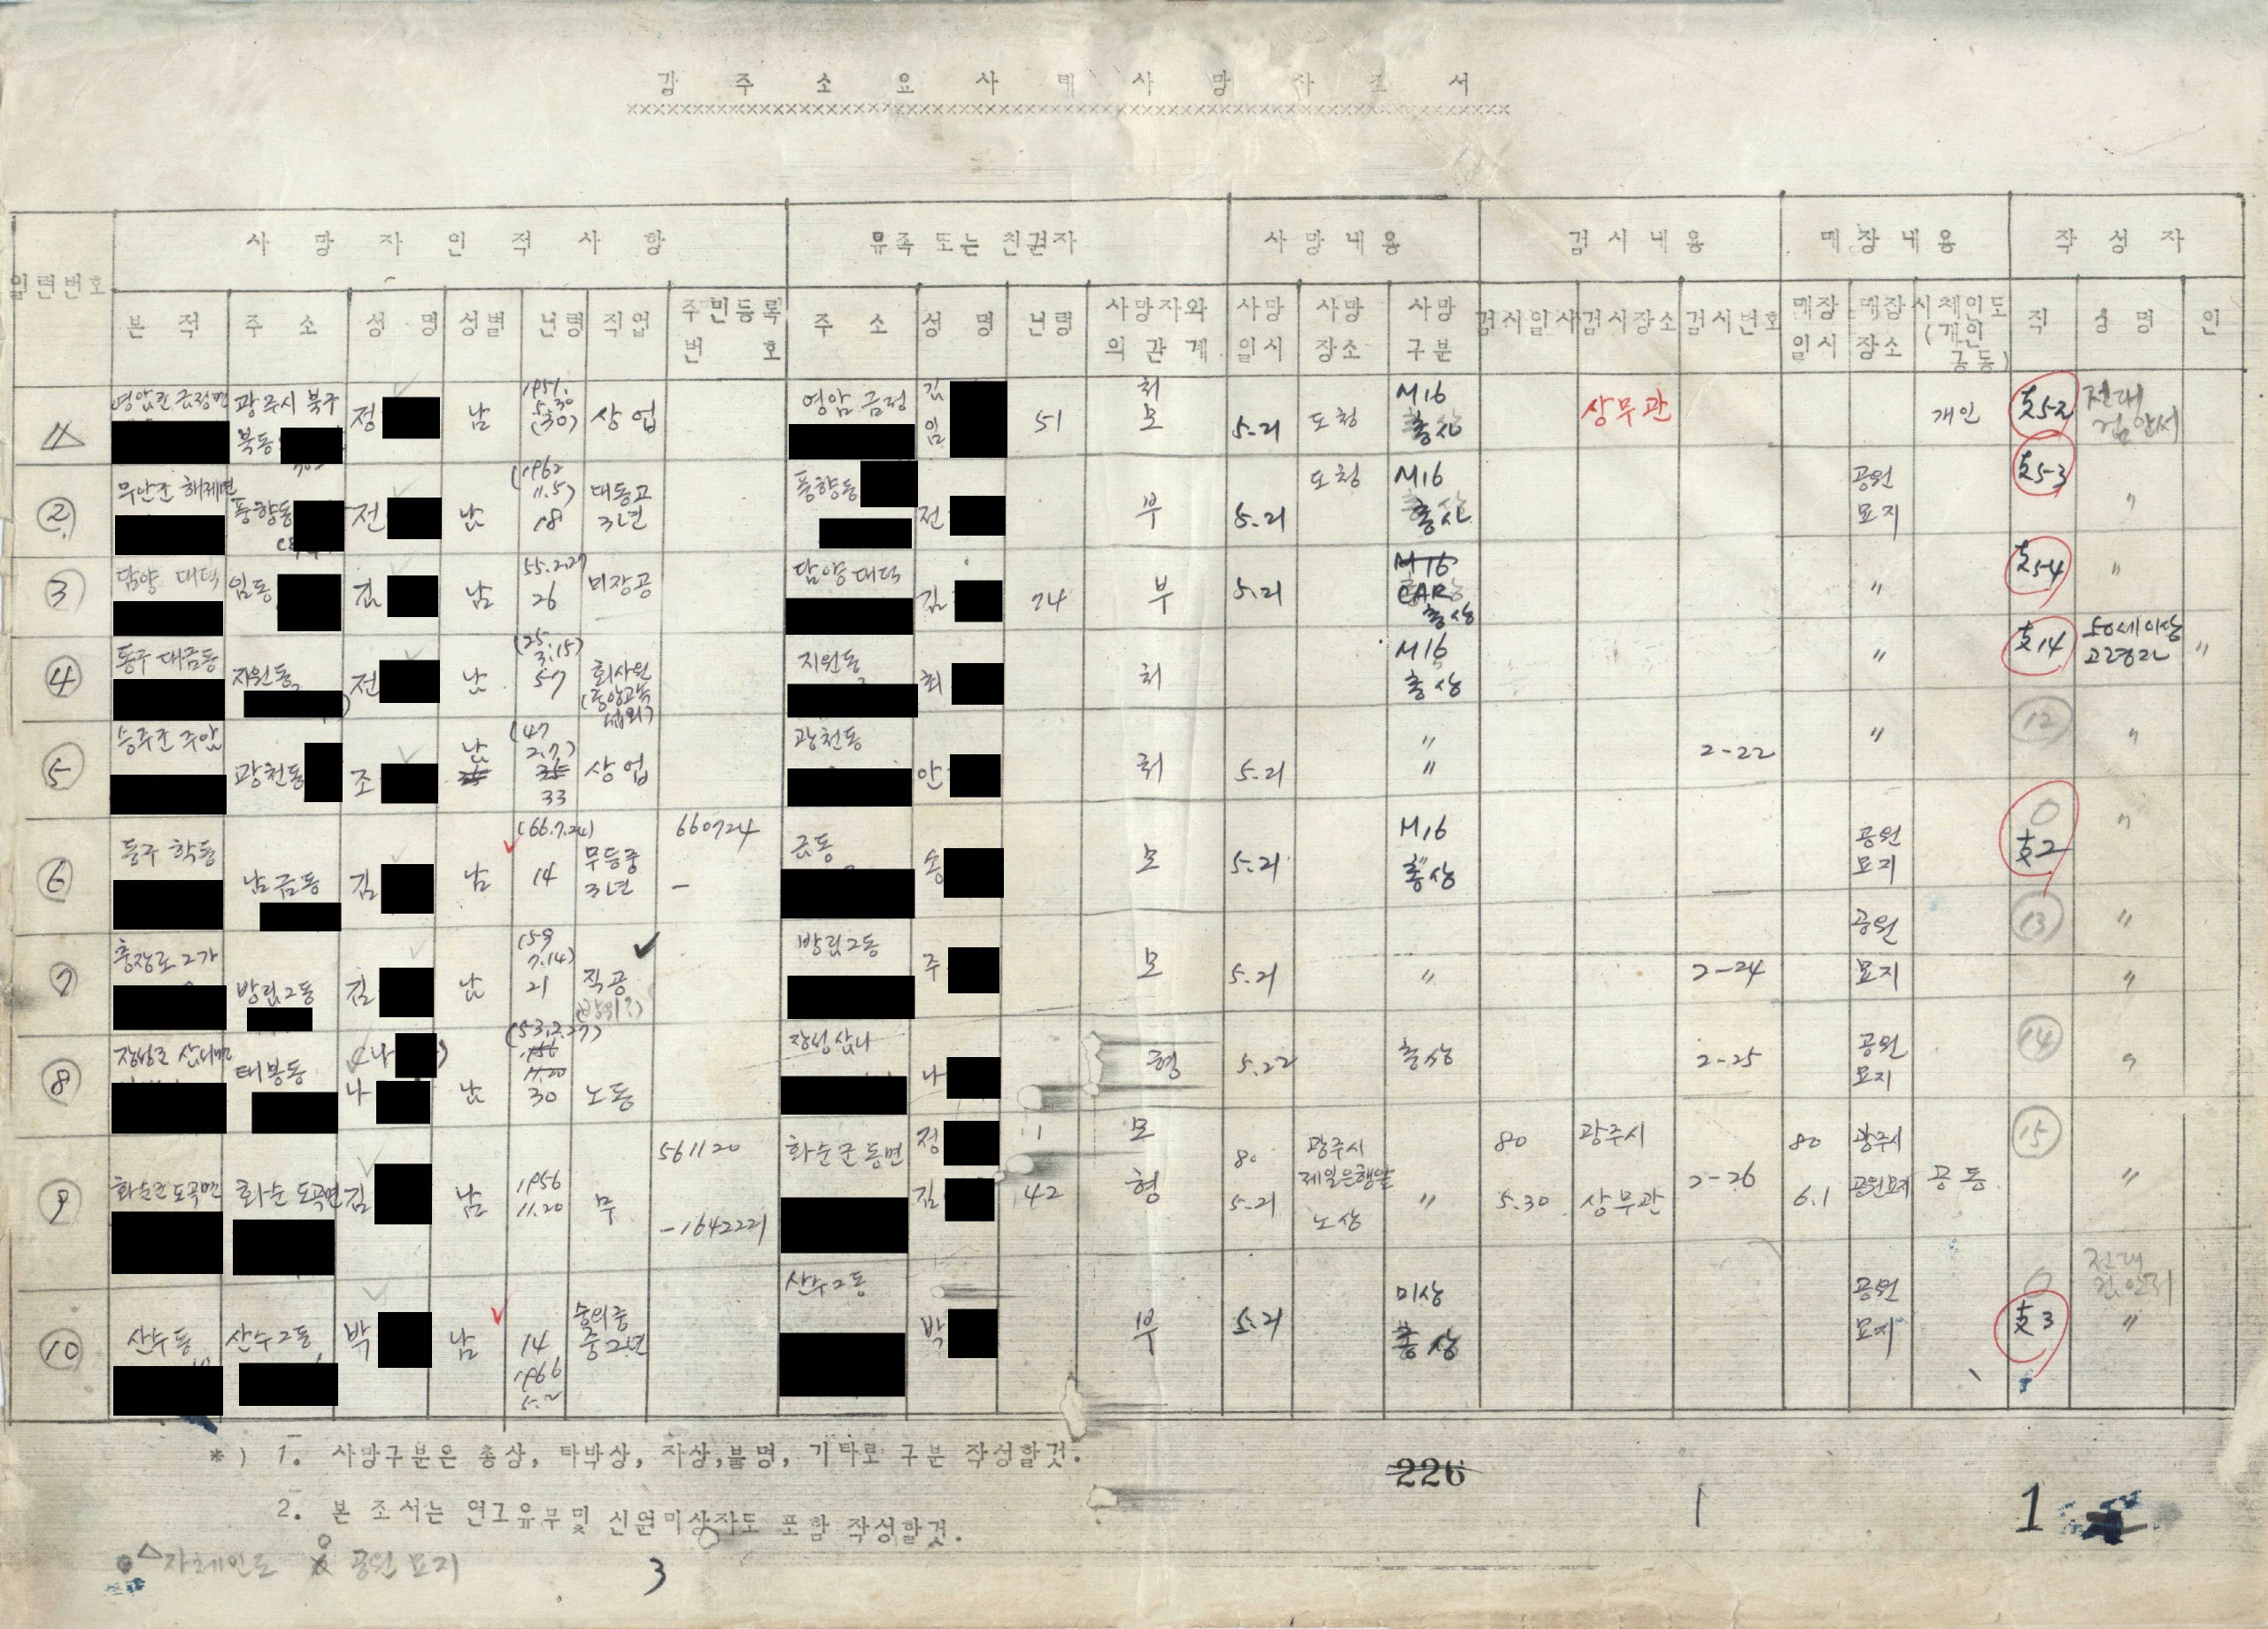 광 주 소 요 사 태 사 망 자 조 서
××××××××××××××××××××××××××××××××××××××××××××××××××
일련번호 사 망 자 인 적 사 항 유족 또는 친권자 사 망 내 용 검 시 내 용 매 장 내 용 작 성 자
본 적 주 소 성 명 성별 년령 직업 주민등록번 호 주 소 성 명 년령 사망자와의 관 계 사망일시 사망장소 사망구분 검시일시 검시장소 검시번호 매장일시 매장장소 시체인도(개인공동) 직 성 명 인
1 영암군 금정면 광주시 북구 북동 정 남 1951. 5.30 (30) 상업 영암 금정 김 임 51 처 모 5.21 도청 M16 총상 상무관 개인 支5-2 전대
② 무안군 해제면 풍향동 전 남 (1962 11.5) 18 대동고 3년 풍향동 전 부 5.21 도청 M16 총상 공원묘지 支5-3 〃
③ 담양 대덕 임동 김 남 55.2.27 26 미장공 담양 대덕 김 74 부 5.21 M16 CAR 총상 〃 支5-4 〃
④ 동구 대금동 지원동 전 남 (25. 3.15) 57 회사원 지원동 최 처 M16 총상 〃 支14 50세이상 고령자 〃
⑤ 승주군 주암 광천동 조 남 (47 2.7) 35 33 상업 광천동 안 처 5.21 〃 〃 2-22 〃 12 〃
⑥ 동구 학동 남금동 김 남 (66.7.24) 14 무등중 3년 660724 - 금동 송 모 5.21 M16 총상 공원묘지 支2 〃
⑦ 충장로 2가 방림2동 김 남 (59 7.14) 21 직공 (방위?) 방림2동 주 모 5.21 〃 2-24 공원묘지 13 〃 〃
⑧ 장성군 삼서면 태봉동 (나 ) 나 남 (53.2.27) 1956 11.20 30 노동 장성 삼서 나 형 5.22 총상 2-25 공원묘지 14 〃
⑨ 화순군 도곡면 화순 도곡면 김 남 1956 11.20 무 561120 -1642221 화순군 동면 정 김 42 모 형 80 5.21 광주시 제일은행앞 노상 〃 80 5.30 광주시 상무관 2-26 80 6.1 광주시 공원묘지 공동 15 〃
⑩ 산수동 산수2동 박 남 14 1966 5.2 숭의중 중2년 산수2동 박 부 5.21 미상 총상 공원묘지 支3 전대 〃
*) 1. 사망구분은 총상, 타박상, 자상,불명, 기타로 구분 작성할것.
2. 본 조서는 연고유무및 신원미상자도 포함 작성할것.
△자체인도 공원묘지
3
226
1
1